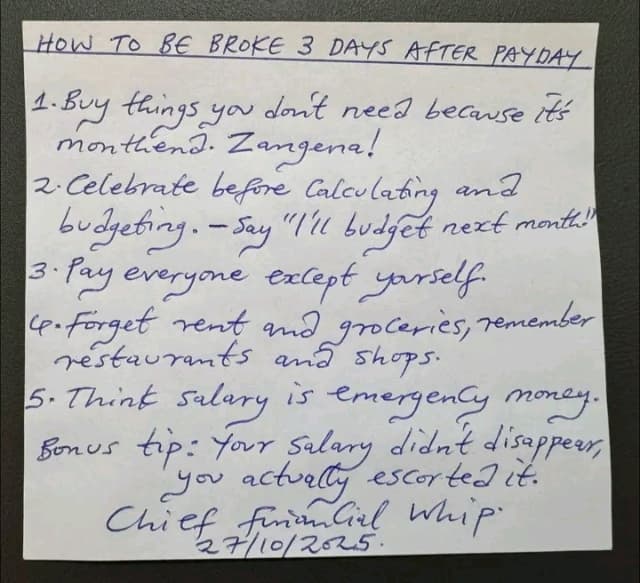 HOW TO BE BROKE 3 DAYS AFTER PAYDAY
1. Buy things you don't need because it's
monthend. Zangena!
2. Celebrate before Calculating and
budgeting. – Say "I'll budget next month!"
3. Pay everyone except yourself.
4. Forget rent and groceries, remember
restaurants and shops.
5. Think salary is emergency money.
Bonus tip: Your Salary didn't disappear,
you actually escorted it.
Chief Financial Whip.
27/10/2025.